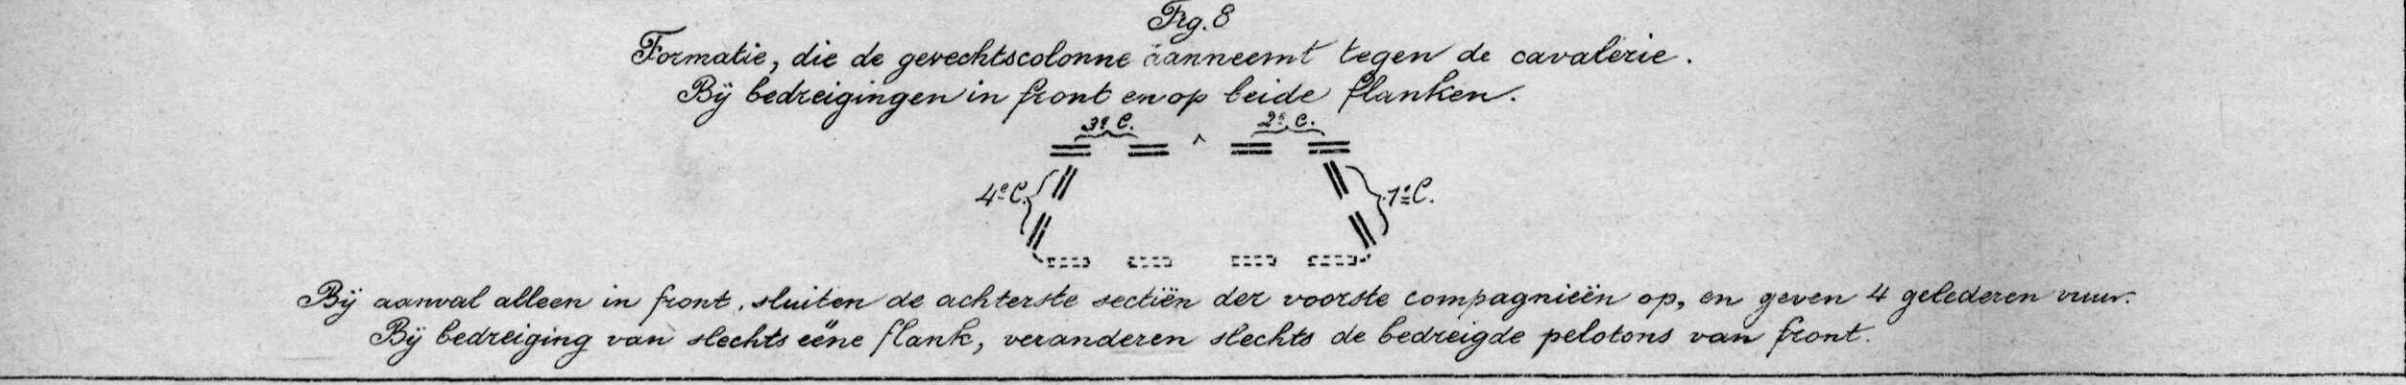 Fig. 8
Formatie, die de gevechtscolonne aanneemt tegen de cavalerie.
Bij bedreigingen in front en op beide flanken.
3e C. 2e C.
4e C. 1e C.
Bij aanval alleen in front, sluiten de achterste sectiën der voorste compagnieën op, en geven 4 gelederen vuur.
Bij bedreiging van slechts eëne flank, veranderen slechts de bedreigde pelotons van front.